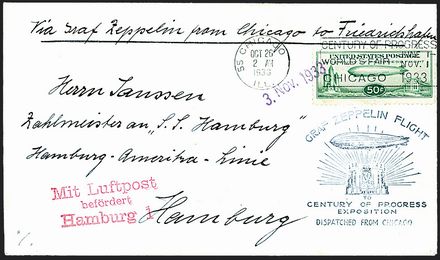 Via Graf Zeppelin from Chicago to Friedrichshafen
CHICAGO
OCT 26
2 AM
1933
ILL.
CENTURY OF PROGRESS
WORLD'S FAIR
CHICAGO
NOV. 1
1933
UNITED STATES POSTAGE
50¢
3. Nov. 1933
Herrn Janssen
Zahlmeister an „S.S. Hamburg"
Hamburg-Amerika-Linie
Hamburg
Mit Luftpost
befördert
Hamburg 1
GRAF ZEPPELIN FLIGHT
TO
CENTURY OF PROGRESS
EXPOSITION
DISPATCHED FROM CHICAGO